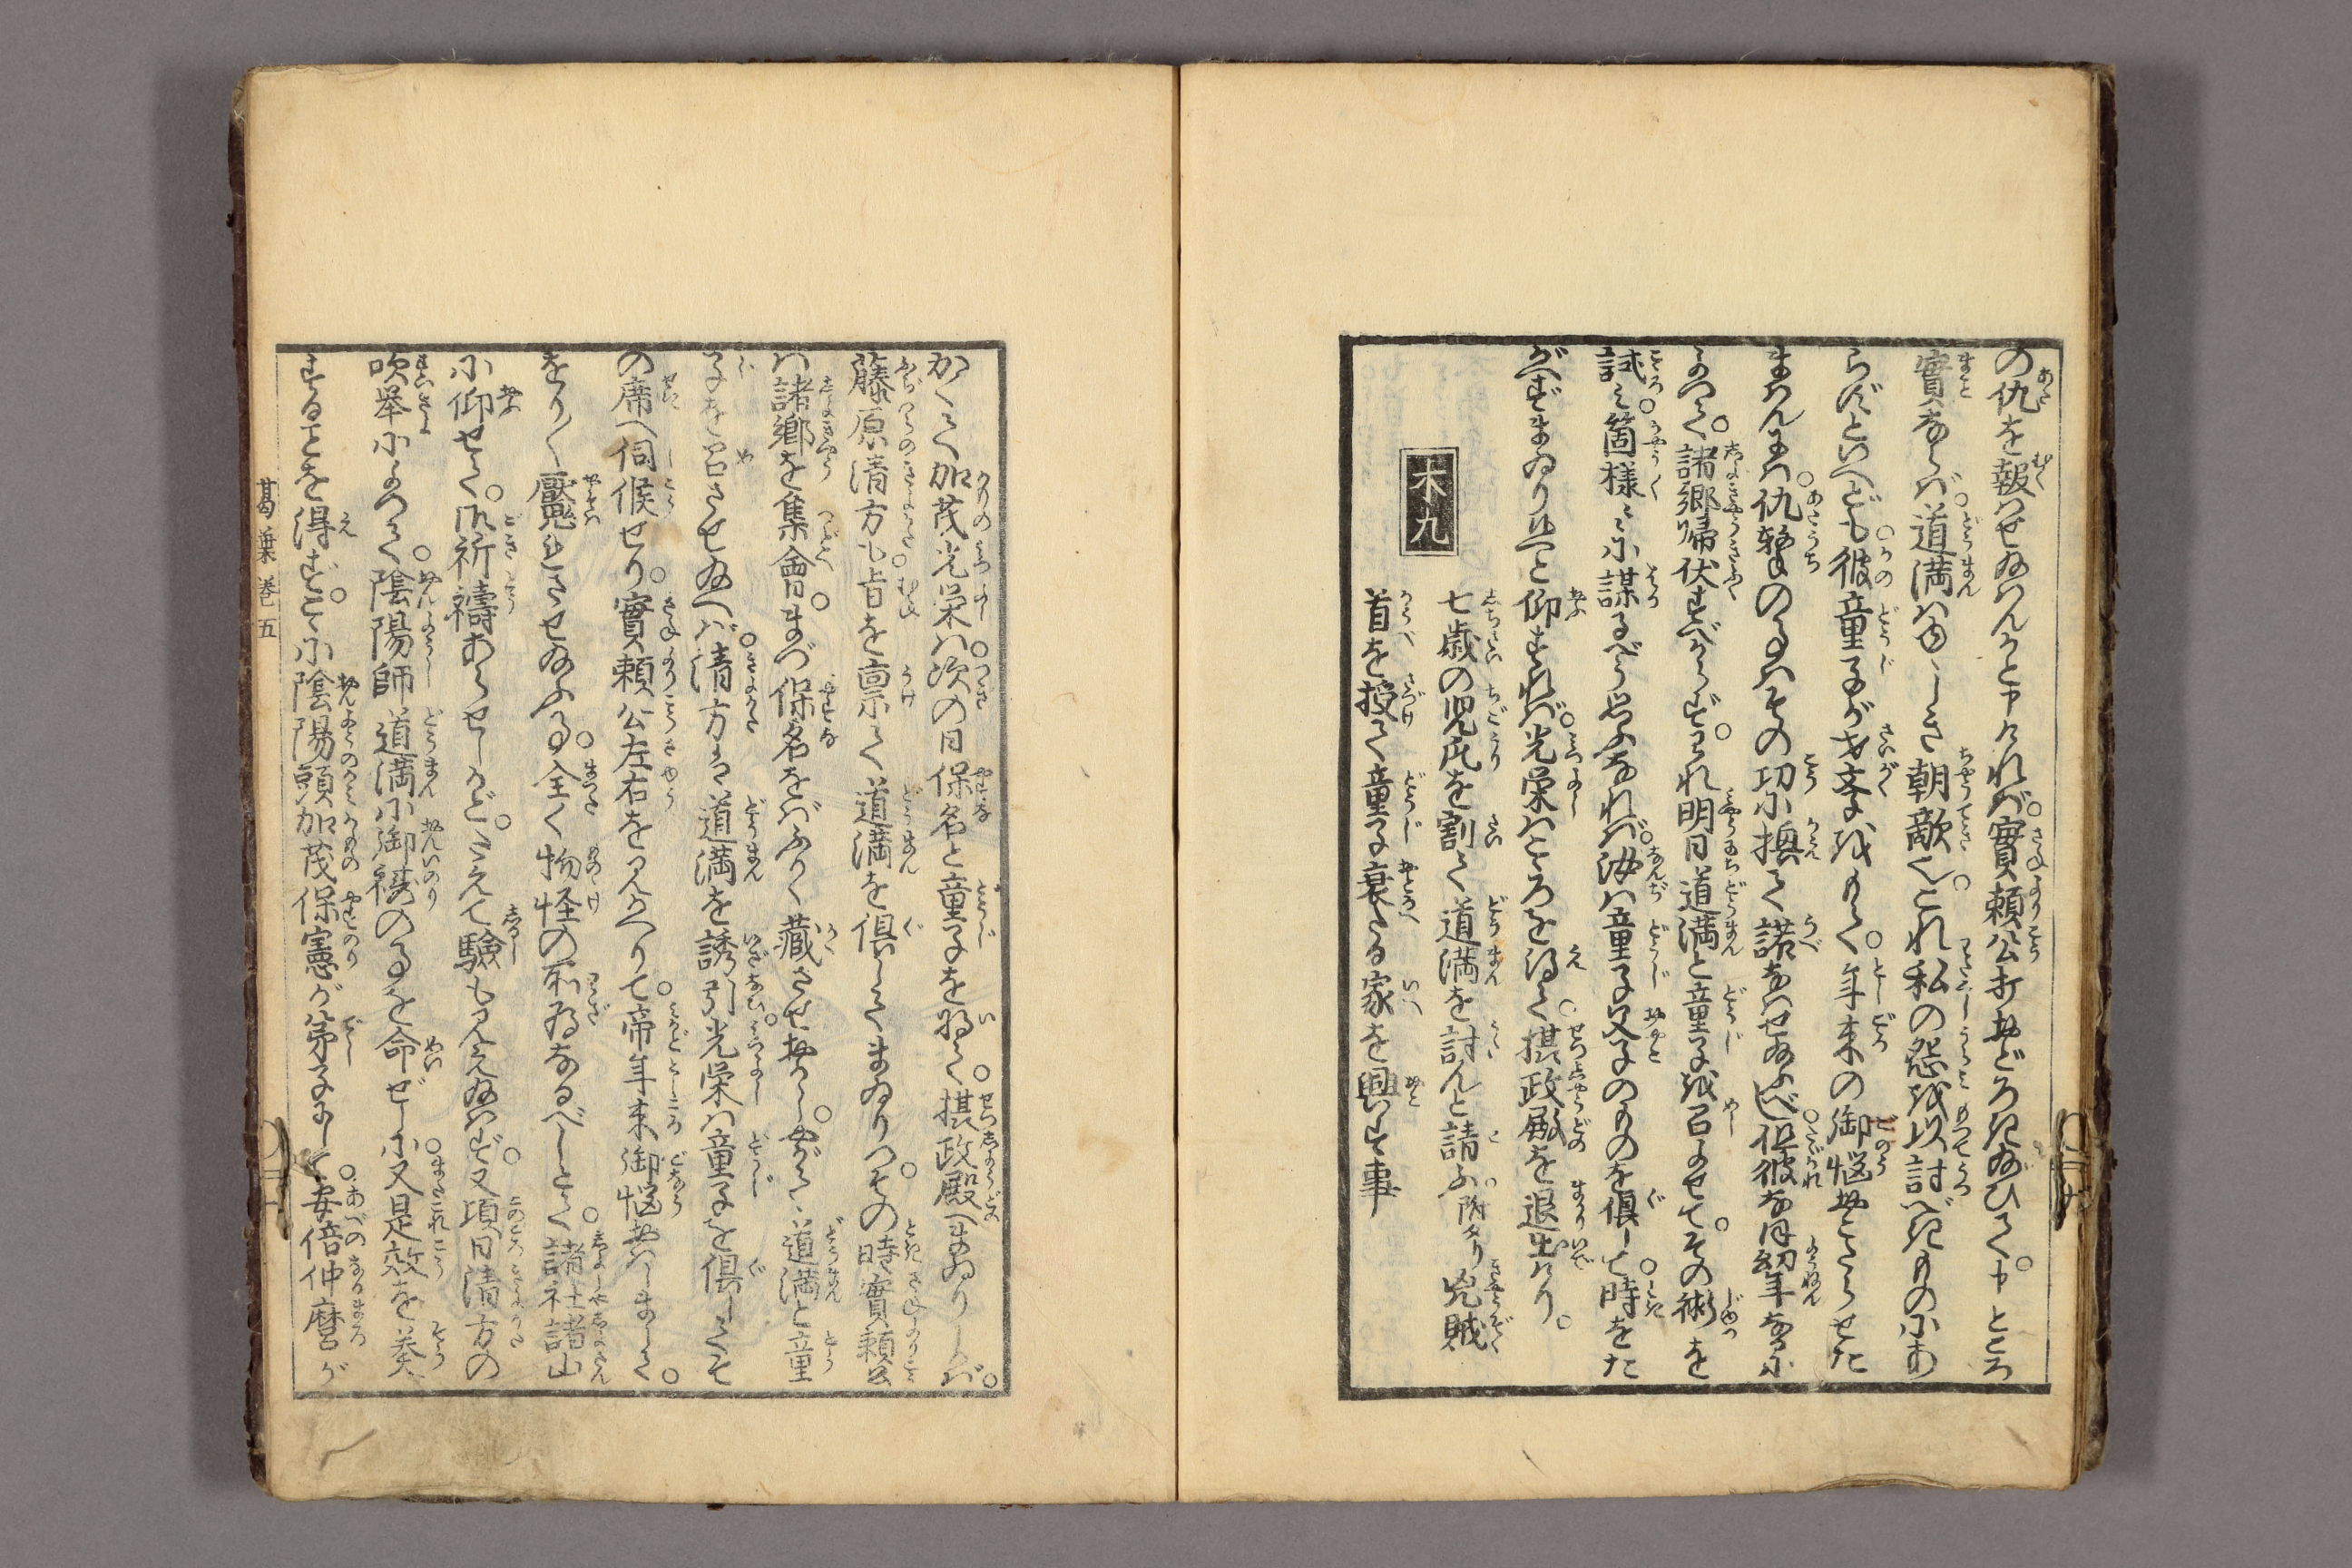 の仇を報はせ給はんかと申されば。實頼公打おどろき給ひて。申ところ
實ならば。道満はゆゝしき朝敵也。これ私の怨を以討べきものにあ
らずといへども。彼童子が才文をもて。年来の御悩おこたらせた
まはんには。仇撃のことはその功に換て諾なはせ給ふべし。但彼なほ幼年なるに
よつて。諸郷帰伏すべからず。われ明日道満と童子を召よせて。その術を
試み。箇様々々に謀るべう思ふなれば。汝は童子父子のものを倶して。時をた
がへずまゐり候へと仰すれば。光栄はこゝろを得て。摂政殿を退出けり。
木九
七歳の児庇を割て道満を討んと請ふ 附タリ 兇賊
首を授て童子衰たる家を興す事
かくて加茂光栄は。次の日保名と童子を将て。摂政殿へまゐりしかば。
藤原清方も。旨を稟て道満を倶してまゐりつ。その時實頼公
は諸郷を集會。まづ保名をばふかく藏させおかし。やがて道満と童
子を召させ給へば。清方は道満を誘引。光栄は童子を倶してそ
の席へ伺候せり。實頼公左右を見かへりて。帝年来御悩おはしまして。
をり〳〵魘れさせ給ふこと。全く物怪の所為なるべしとて。諸社諸山
に仰せて。御祈禱あらせしかど。さえて驗も見え給はず。又項日清方の
吹挙によつて。陰陽師道満に御禱のことを命ぜしに。又是效を奏
することを得ず。こゝに陰陽頭加茂保憲が弟子にして。安倍仲麿が
葛葉巻五